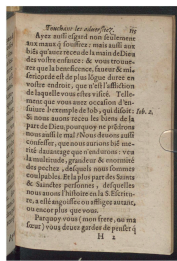 Touchant les aduersitez. 115
Ayez aussi esgard non seulement
aux maux q̃ souffrez: mais aussi aux
biẽs qu'auez receu de la main de Dieu
dés vostre enfance: & vous trouue-
rez que la beneficence, faueur & mi-
sericorde est de plus lõgue duree en
vostre endroit, que n'est l'afflictiõ
de laquelle vous estes visité. Telle-
ment que vous auez occasion d'en-
suiure l'exemple de Iob, qui disoit: Iob. 2.
Si nous auons receu les biens de la
part de Dieu, pourquoy ne prẽdrons
nous aussi le mal? Nous deuons aussi
confesser, que nous aurions biẽ me-
rité dauantage que n'endurons: veu
la multitude, grandeur & enormité
des pechez, desquels nous sommes
coulpables. Et la plus part des Saints
& Sainctes personnes, desquelles
nous auons l'histoire en la S. Escritu-
re, a esté angoissee ou affligee autant,
ou encor plus que vous.
Parquoy vous (mon frere, ou ma
sœur) vous deuez garder de penser q̃
H 2